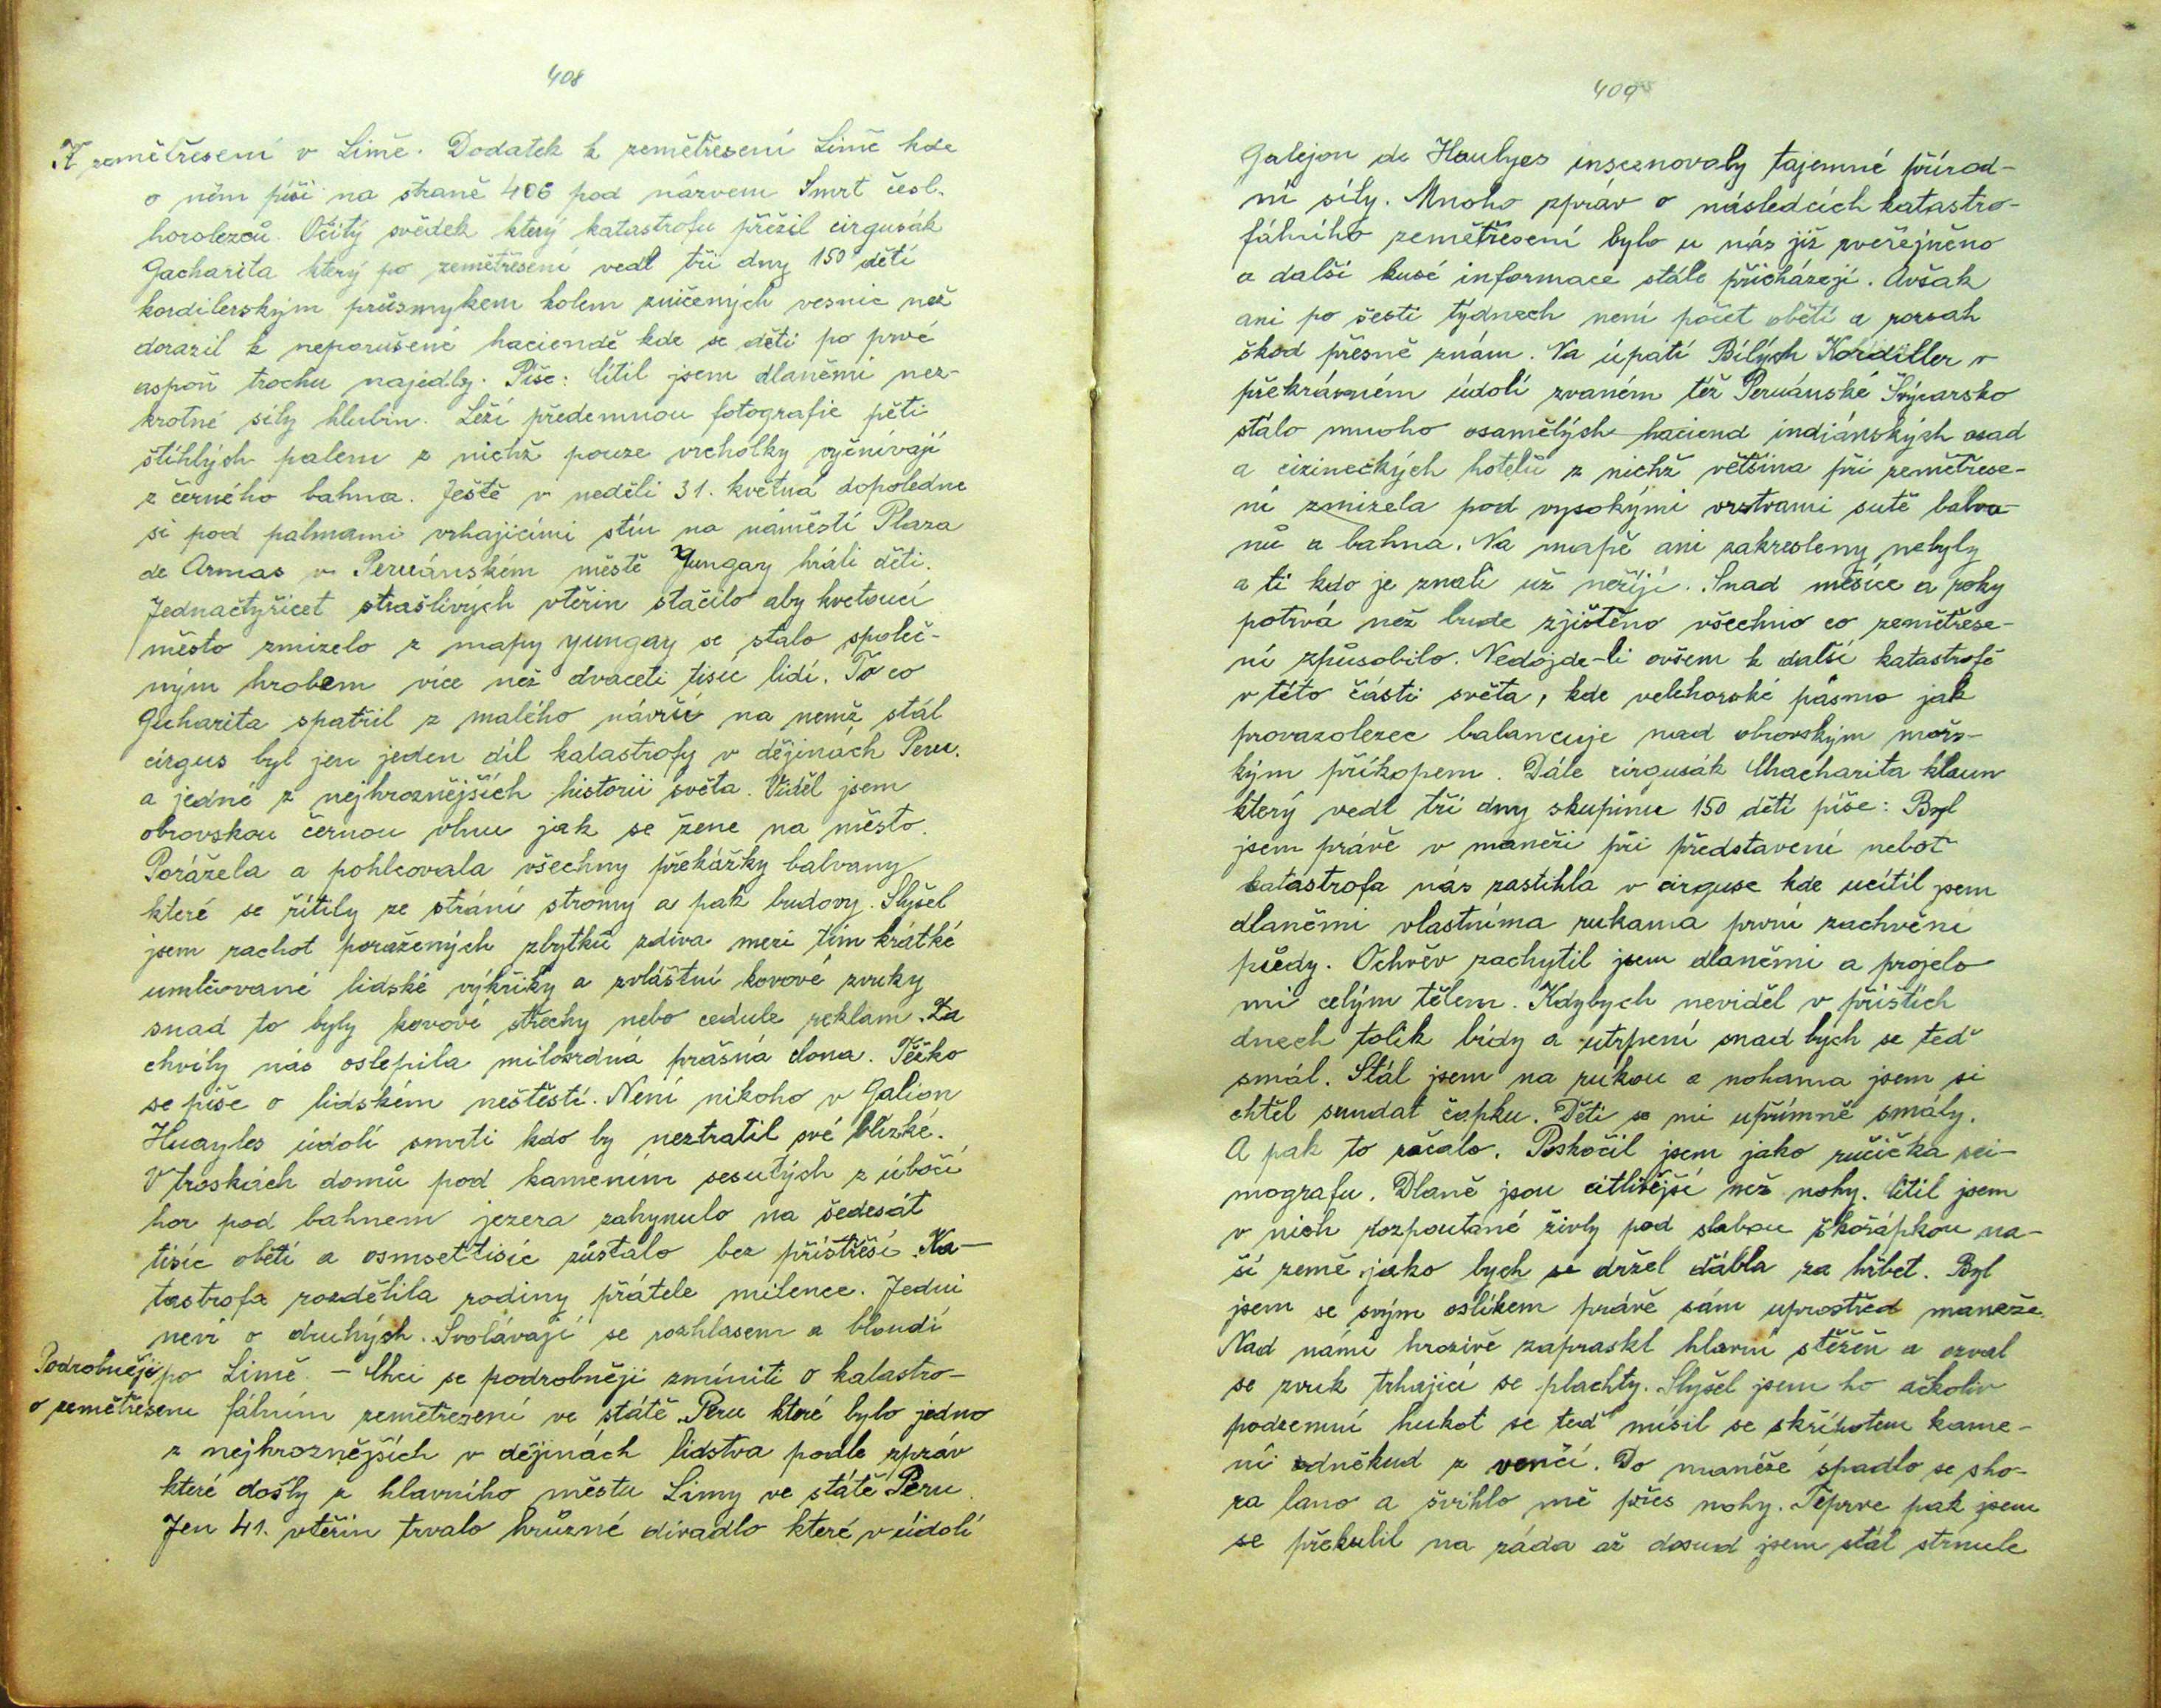 408
K zemětřesení v Limě. Dodatek k zemětřesení Limě kde
o něm píši na straně 406 pod názvem Smrt česl.
horolezců. Očitý svědek který katastrofu přežil cirgusák
Gacharita který po zemětřesení vedl tři dny 150 dětí
kordilerským průsmykem kolem zničených vesnic než
dorazil k neporušené haciendě kde se děti po prvé
aspoň trochu najedly. Píše: Cítil jsem dlaněmi nez-
krotné síly hlubin. Leží předemnou fotografie pěti
štíhlých palem z nichž pouze vrcholky vyčnívají
z černého bahna. Ještě v neděli 31. května dopoledne
si pod palmami vrhajícími stín na náměstí Plaza
de Armas v Peruánském městě Yungay hráli děti.
Jednačtyřicet strašlivých vteřin stačilo aby kvetoucí
město zmizelo z mapy yungay se stalo společ-
ným hrobem více než dvaceti tisíc lidí. To co
Gucharita spatřil z malého návrší na nemž stál
cirgus byl jen jeden díl katastrofy v dějinách Peru.
a jedné z nejhroznějších historii světa. Viděl jsem
obrovskou černou vlnu jak se žene na město.
Porážela a pohlcovala všechny překážky balvany
které se řítily ze strání stromy a pak budovy. Slyšel
jsem rachot poražených zbytků zdiva mezi tím krátké
umlčované lidské výkřiky a zvláštní kovové zvuky
snad to byly kovové střechy nebo cedule reklam. Za
chvíly nás oslepila milosrdná prašná clona. Těžko
se píše o lidském neštěstí. Není nikoho v Galion
Huayles údolí smrti kdo by neztratil své blízké.
V troskách domů pod kamením sesutých z úbočí
hor pod bahnem jezera zahynulo na šedesát
tisíc obětí a osmsettisíc zůstalo bez přístřeší. Ka-
tastrofa rozdělila rodiny přátele milence. Jedni
neví o druhých. Svolávají se rozhlasem a bloudí
Podrobněji po Limě. – Chci se podrobněji zmíniti o katastro-
o zemětřesení fálním zemětřezení ve státě Peru které bylo jedno
z nejhroznějších v dějinách lidstva podle zpráv
které došly z hlavního městu Limy ve státě Peru.
Jen 41. vteřin trvalo hrůzné divadlo které v údolí
409
Galejon de Haulyes inscenovaly tajemné přírod-
ní síly. Mnoho zpráv o následcích katastro-
fálního zemětřesení bylo u nás již zveřejněno
a další kusé informace stále přicházejí. Avšak
ani po šesti týdnech není počet obětí a rozsah
škod přesně znám. Na úpatí Bílých Kordiller v
překrásném údolí zvaném též Peruánské Švýcarsko
stálo mnoho osamělých haciend indiánských osad
a cizineckých hotelů z nichž většina při zemětřese-
ní zmizela pod vysokými vrstvami sutě balva-
nů a bahna. Na mapě ani zakresleny nebyly
a ti kdo je znali už nežijí. Snad měsíce a roky
potrvá než bude zjištěno všechno co zemětřese-
ní způsobilo. Nedojde-li ovšem k další katastrofě
v této části světa, kde velehorské pásmo jak
provazolezec balancuje nad obrovským mořs-
kým příkopem. Dále cirgusák Chacharita klaun
který vedl tři dny skupinu 150 dětí píše: Byl
jsem právě v maneži při představení neboť
katastrofa nás zastihla v cirguse kde ucítil jsem
dlaněmi vlastníma rukama první zachvění
půdy. Ochvěv zachytil jsem dlaněmi a projelo
mi celým tělem. Kdybych neviděl v příštích
dnech tolik bídy a utrpení snad bych se teď
smál. Stál jsem na rukou a nohama jsem si
chtěl sundat čapku. Děti se mi upřímně smály.
A pak to začalo. Poskočil jsem jako ručička sei-
mografu. Dlaně jsou citlivější než nohy. Cítil jsem
v nich rozpoutané živly pod slabou škořápkou na-
ší země jako bych se držel ďábla za hřbet. Byl
jsem se svým oslíkem právě sám uprostřed maneže.
Nad námi hrozivě zapraskl hlavní stěžeň a ozval
se zvuk trhající se plachty. Slyšel jsem ho ačkoliv
podzemní hukot se teď mísil se skřípotem kame-
ní odněkud z venčí. Do manéže spadlo se sho-
ra lano a švihlo mě přes nohy. Teprve pak jsem
se překulil na záda až dosud jsem stál strnule